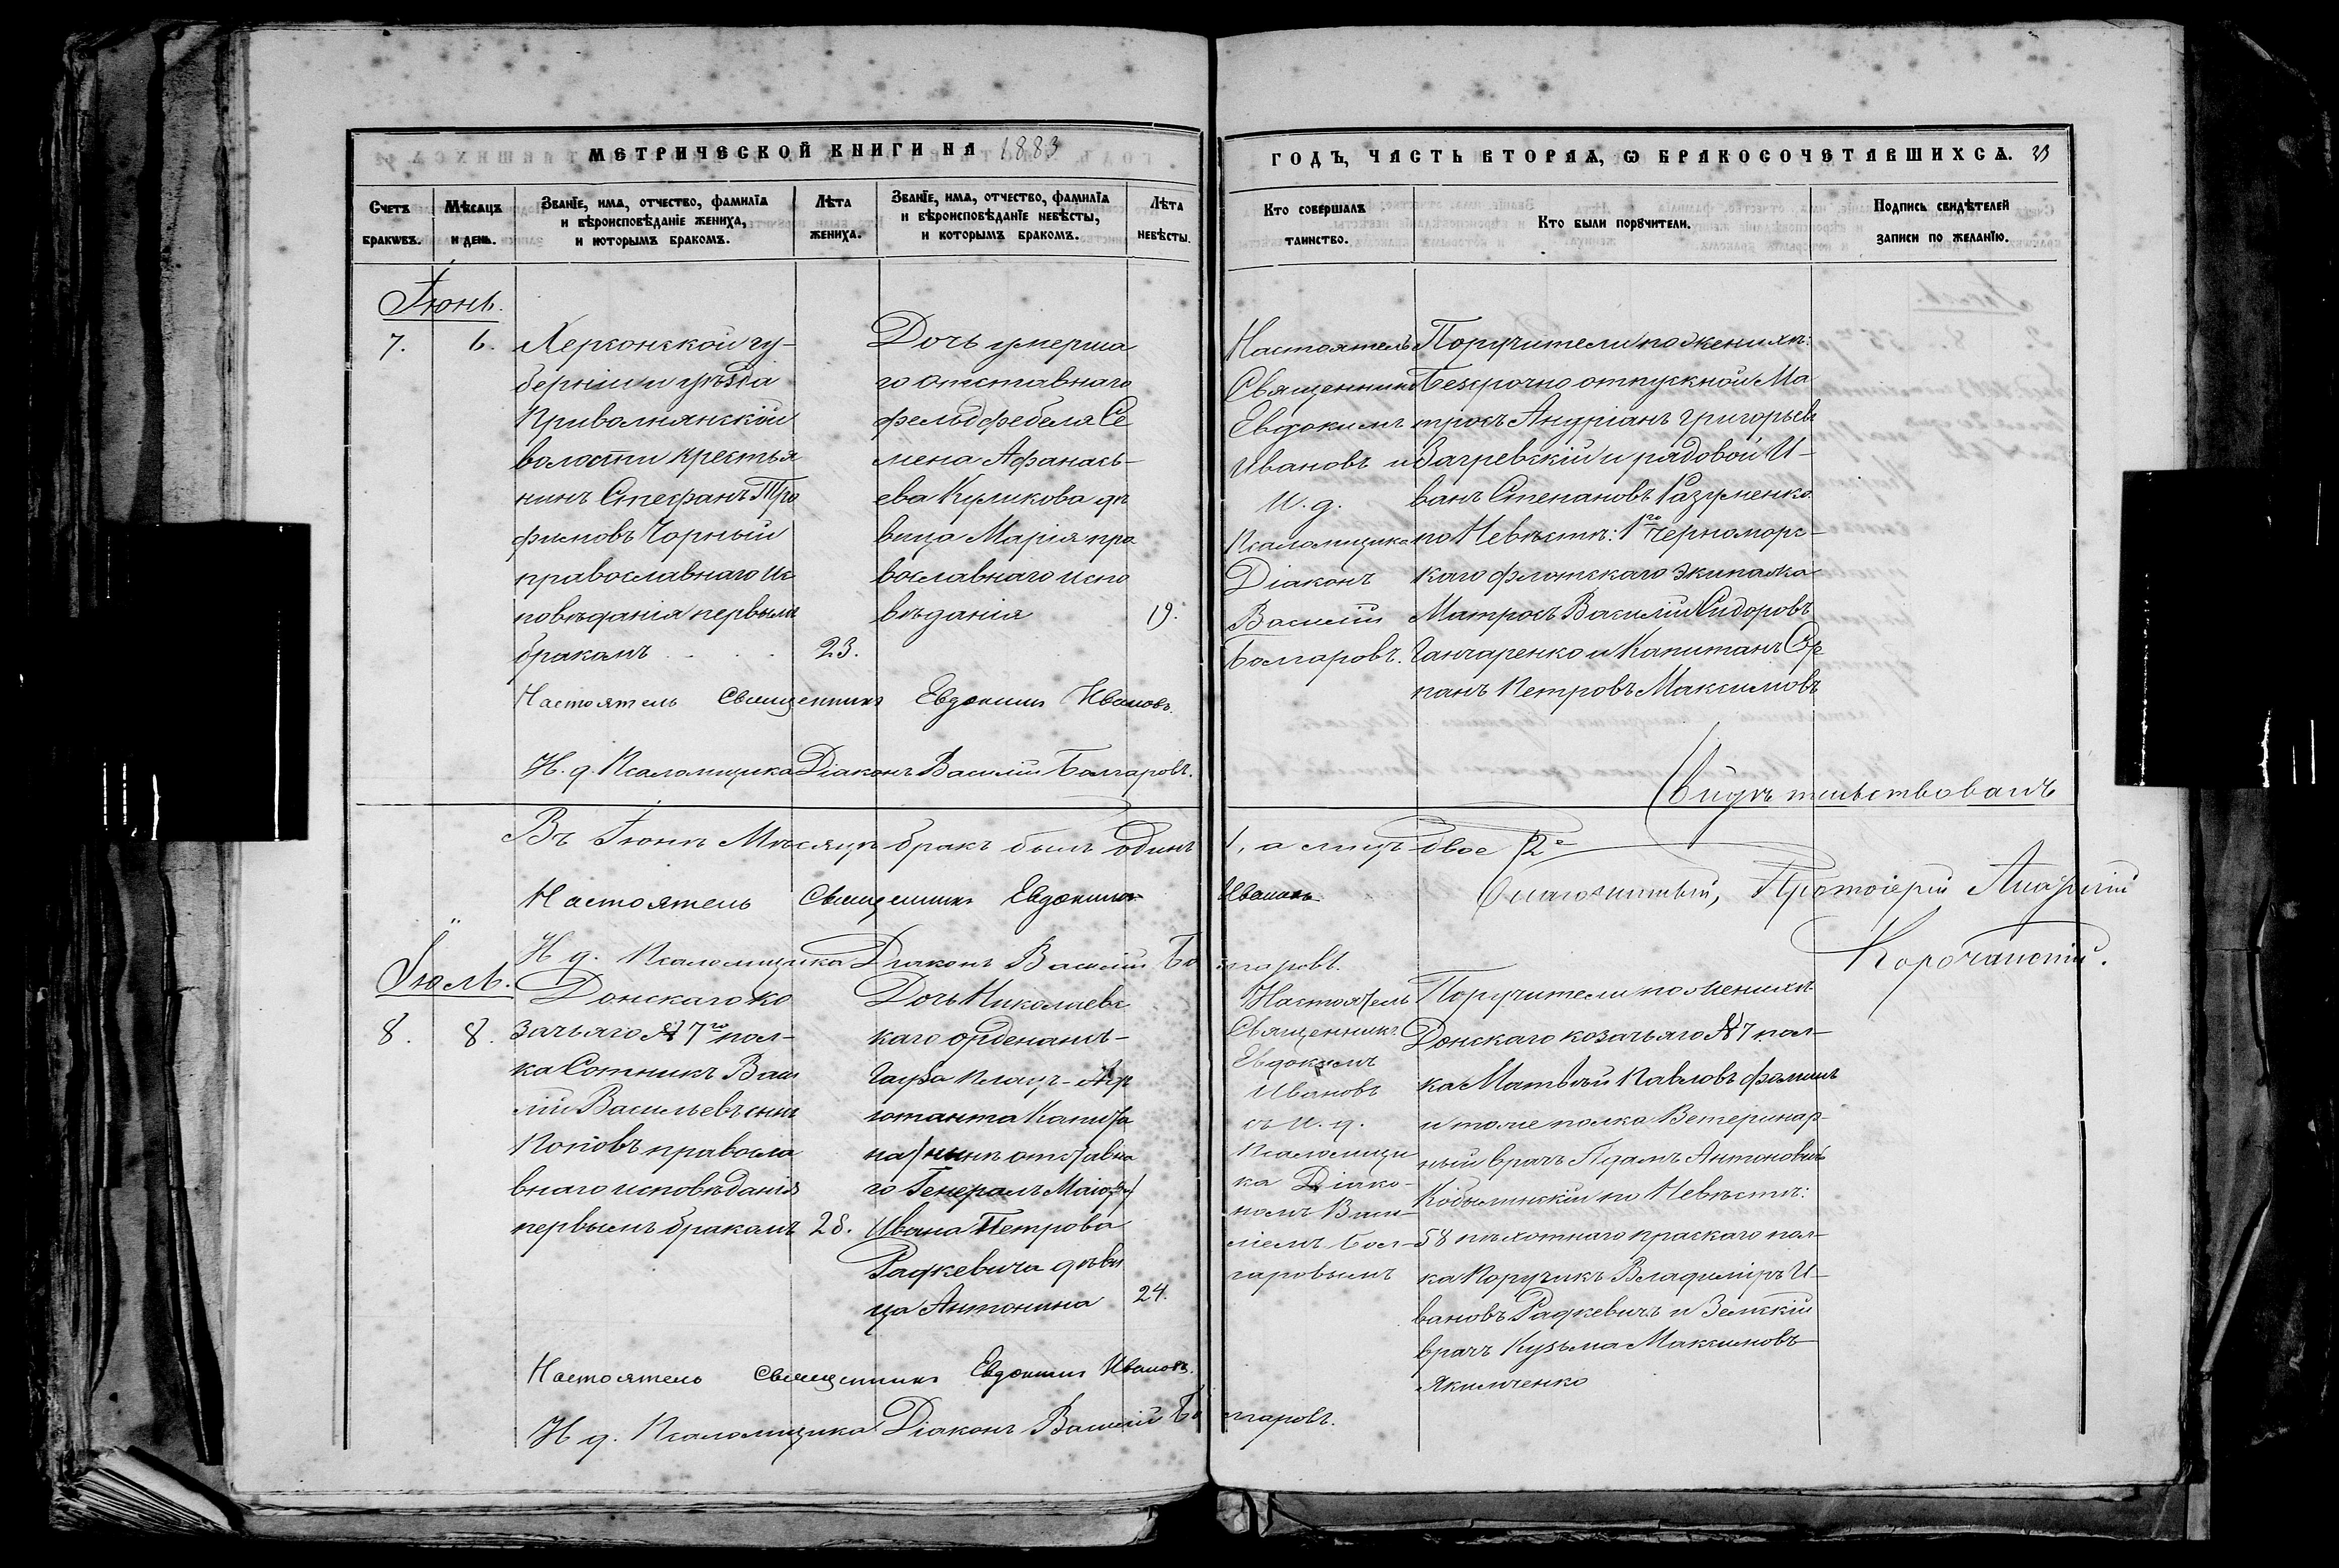 МЕТРИЧЕСКОЙ КНИГИ НА 1883
ГОДЪ, ЧАСТЬ ВТОРАЯ, Ѡ БРАКОСОЧЕТАВШИХСЯ. 23
Счетъ браковъ.
Мѣсяцъ и день.
Званїе, имя, отчество, фамилїя
и вѣроисповѣданїе жениха,
и которымъ бракомъ.
Лѣта
жениха.
Званїе, имя, отчество, фамилїя
и вѣроисповѣданїе невѣсты,
и которымъ бракомъ.
Лѣта
невѣсты.
Кто совершалъ
таинство.
Кто были порꙋчители.
Подпись свидѣтелей
записи по желанїю.
Іюнь.
7. 6.
Херсонской гу-
берніи и уѣзда
Привольнянской
волости крестья
нинъ Стефанъ Тро
фимовъ Чорный
православнаго ис
повѣданія первымъ
бракомъ 23.
Дочь умерша
го отставнаго
фельдфебеля Се
мена Афанась-
ева Куликова дѣ
вица Марія пра
вославнаго испо
вѣданія 19.
Настоятель
Священникъ
Евдокимъ
Ивановъ и
И. д.
Псаломщика
Діаконъ
Василій
Болгаровъ.
Поручители по женихѣ:
Безсрочно отпускной Ма
тросъ Андріанъ Григорьевъ
Загревскій и рядовой И-
ванъ Степановъ Разуменко
по Невѣстѣ: 1го Черноморс-
каго флотскаго экипажа
Матросъ Василій Сидоровъ
Ганчаренко и Капитанъ
Петровъ Максимовъ
Настоятель Священникъ Евдокимъ Ивановъ.
И. д. Псаломщика Діаконъ Василій Болгаровъ.
Свидѣтельствовалъ
Въ Іюнѣ Мѣсяцѣ бракъ былъ одинъ 1, а лицъ двое 2е
Настоятель Священникъ Евдокимъ Ивановъ
Благочинный, Протоіерей
И д. Псаломщика Діаконъ Василій Болгаровъ.
Іюль.
8. 8.
Донскаго ко
зачьяго № 7го пол-
ка Сотникъ Васи
лій Васильевъ сынъ
Поповъ правосла
внаго исповѣданія
первымъ бракомъ 28.
Дочь Николаевс
каго орденансъ-
Гауза Плацъ-Адъ
ютанта Капита
на (нынѣ отставна
го Генералъ Маіора)
Ивана Петрова
Радкевича дѣви
ца Антонина 24.
Настоятель
Священникъ
Евдокимъ
Ивановъ
съ И. д.
Псаломщи
ка Діако-
номъ Васи-
ліемъ Бол-
гаровымъ
Поручители по Женихѣ
Донскаго козачьяго № 7 пол-
ка Матвѣй Павловъ Фоминъ
и тогоже полка Ветеринар-
ный врачъ Адамъ Антоновичъ
Кобылинскій по Невѣстѣ:
58 пѣхотнаго прагскаго пол-
ка Поручикъ Владиміръ И-
вановъ Радкевичъ и Земскій
врачъ Кузьма Максимовъ
Якимченко
Настоятель Священникъ Евдокимъ Ивановъ.
И д. Псаломщика Діаконъ Василій Болгаровъ.